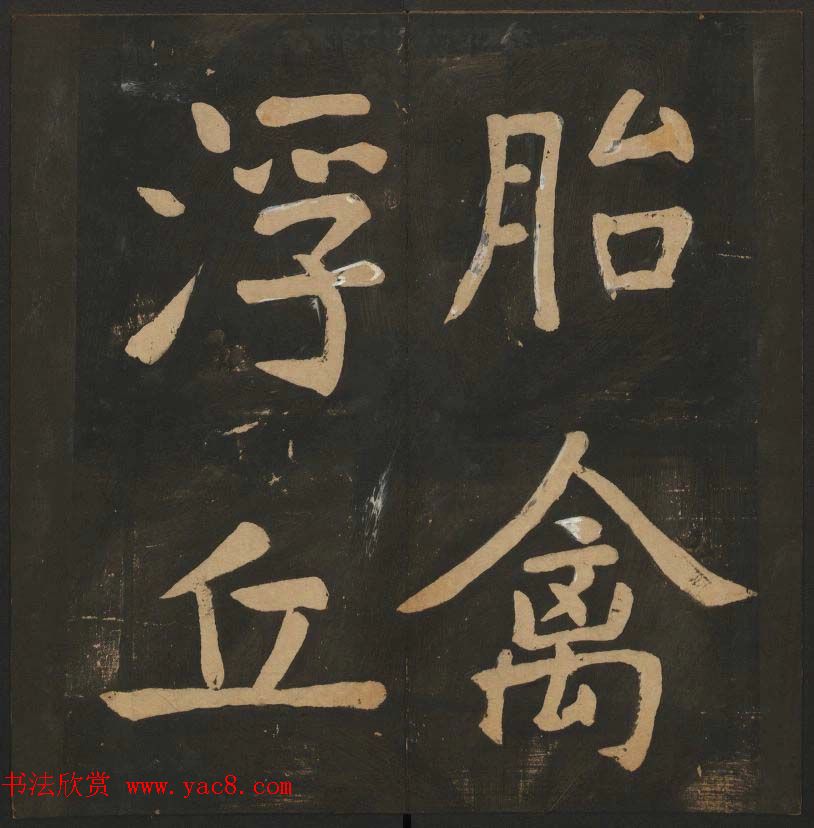 胎禽
浮丘
书法欣赏 www.yac8.com